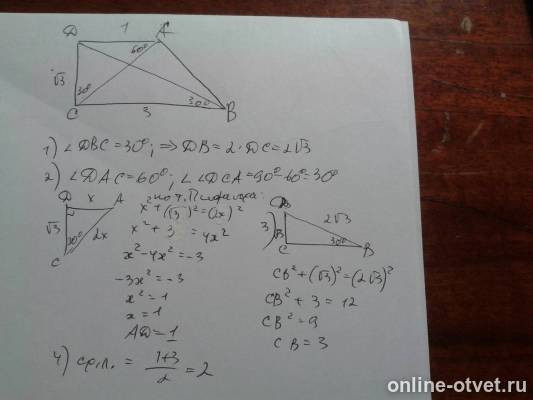 D 1 A
60°
√3
30°
C 3 30° B
1) ∠DBC = 30°; ⇒ DB = 2·DC = 2√3
2) ∠DAC = 60°; ∠DCA = 90°-60°=30°
по т. Пифагора:
D x A
√3 2x
30°
C
x²+(√3)²=(2x)²
x²+3 =4x²
x²-4x²=-3
-3x²=-3
x²=1
x=1
AD=1
3) D
2√3
√3
C 30° B
CB²+(√3)²=(2√3)²
CB²+3=12
CB²=9
CB=3
4) ср.л. = 1+3/2 = 2
online-otvet.ru